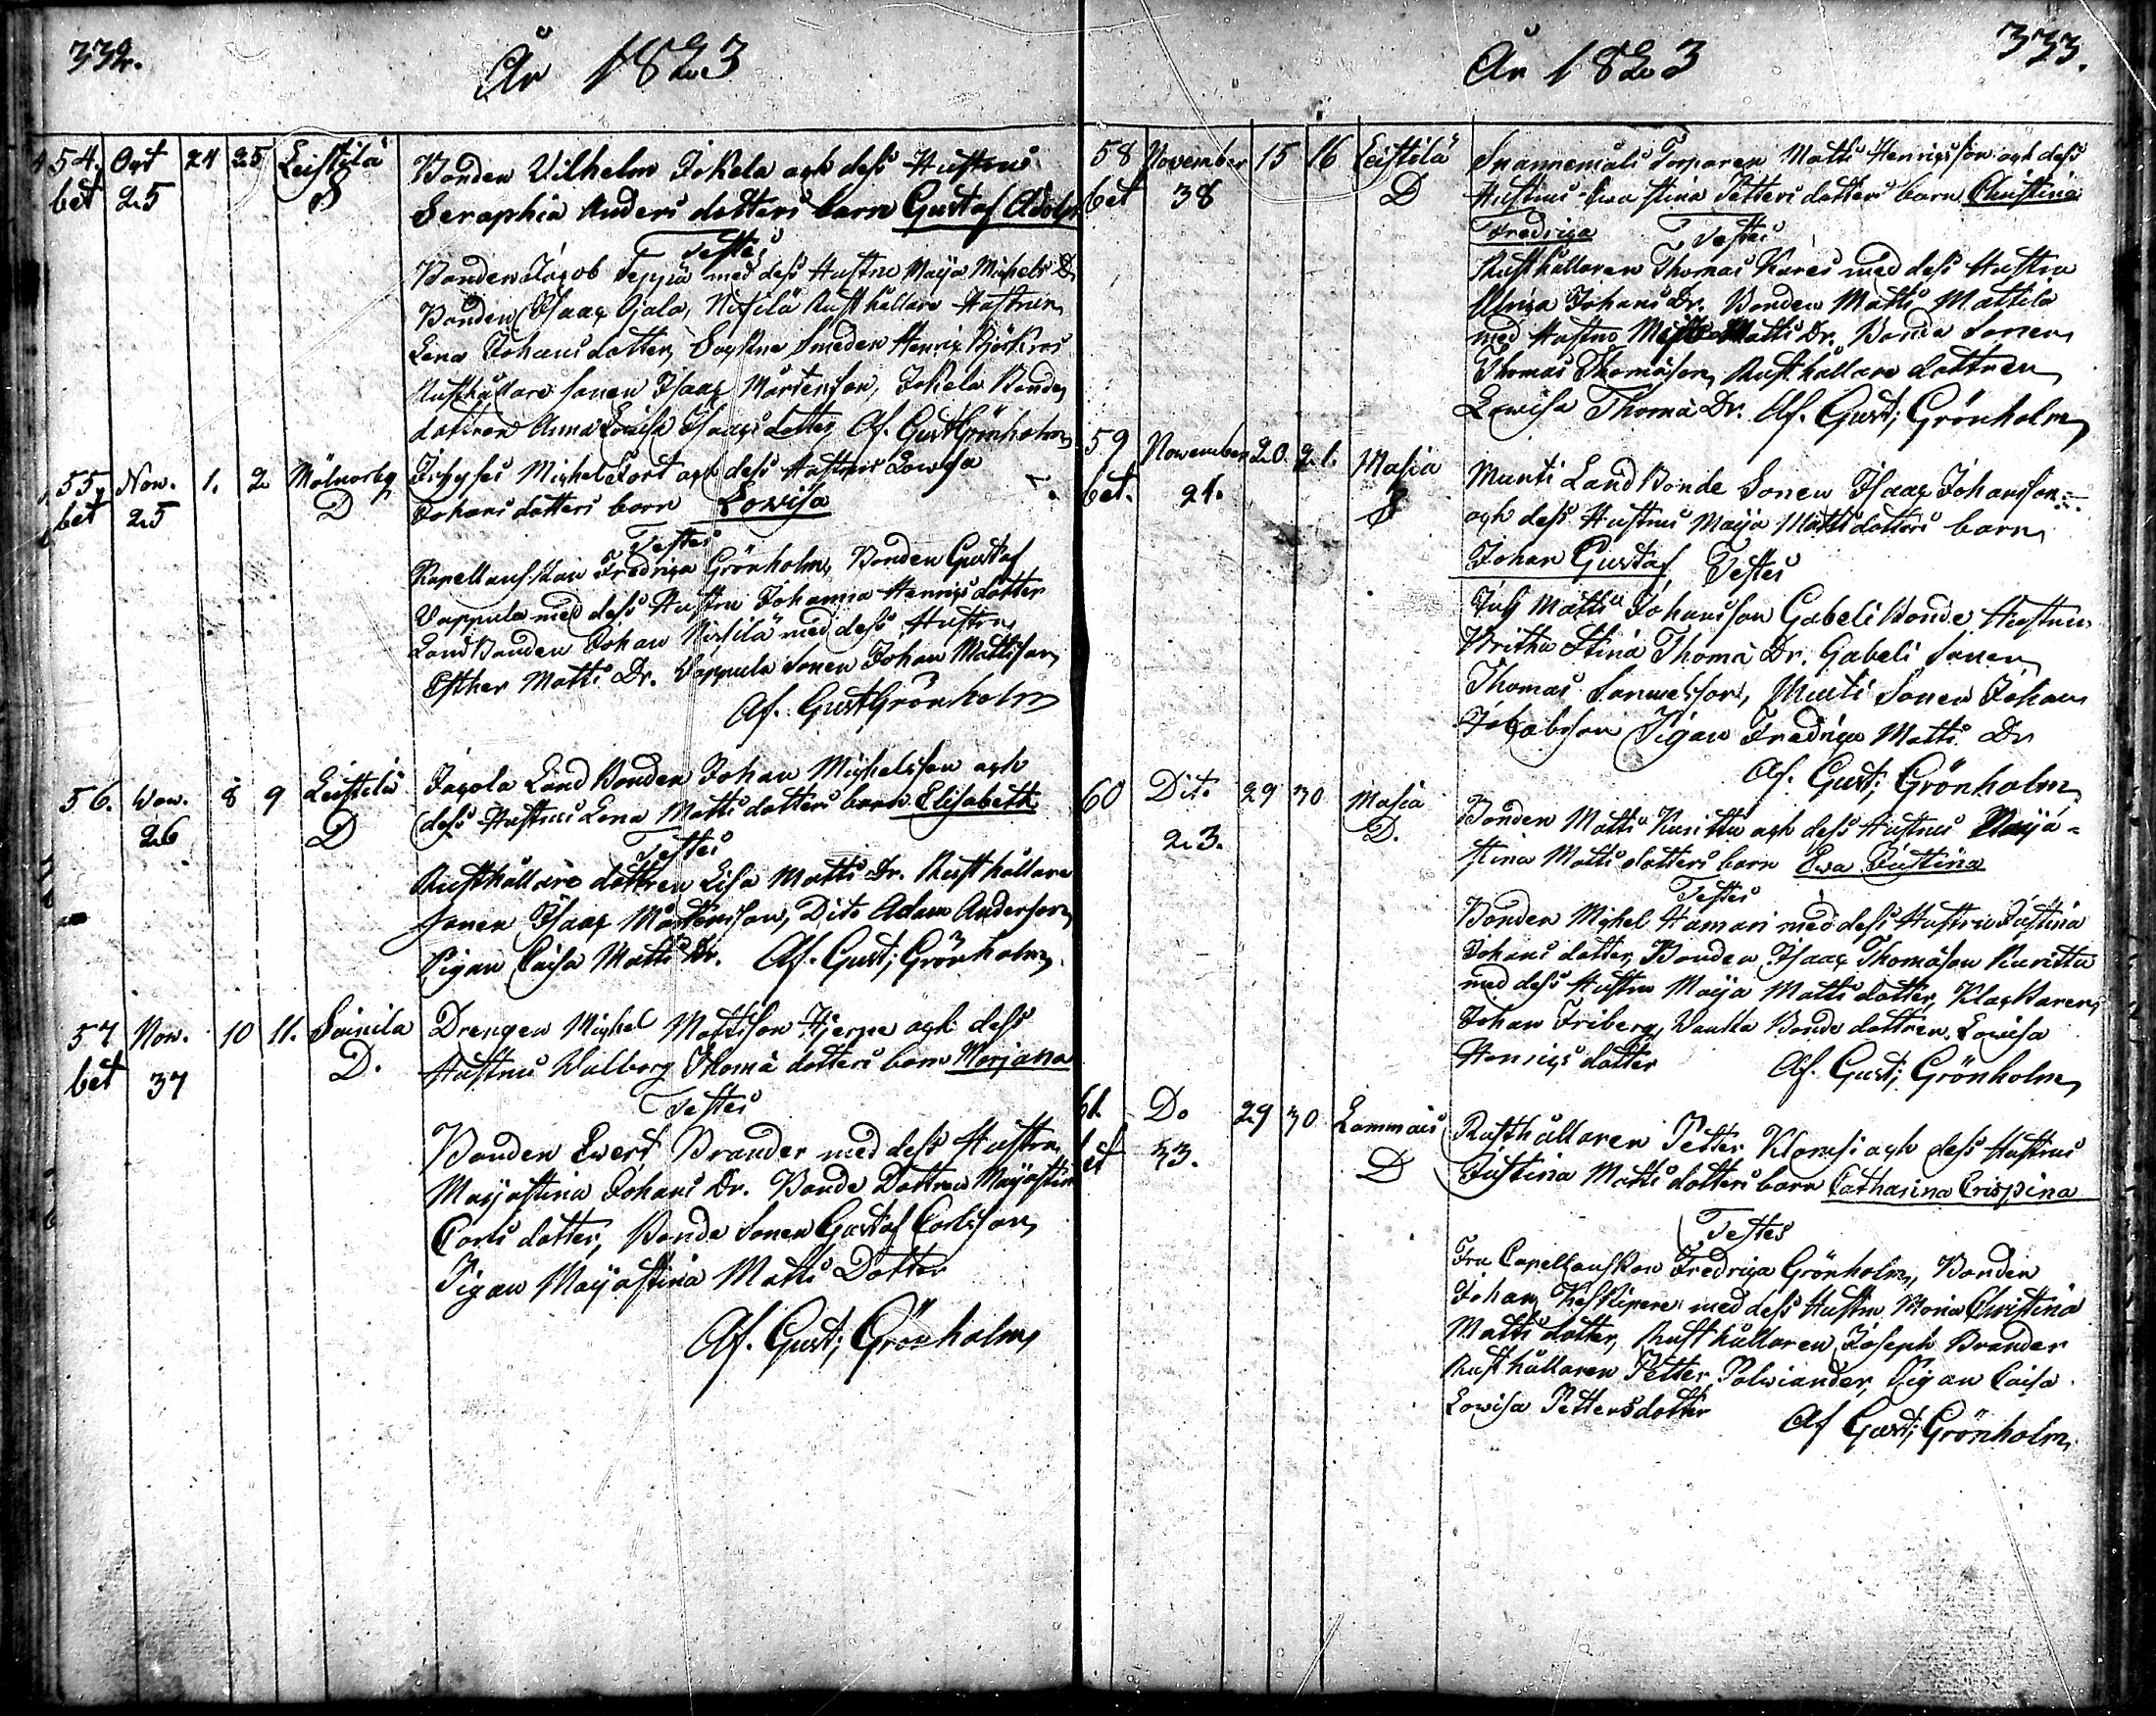 332.
År 1823
54. Oct 24 25 Leistilä Bonden Wilhelm Jokela och dess Hustrus
bet 25 S Seraphia Anders dotters barn Gustaf Adolph
Testes
Bonden Jacob Seppä med dess Hustru Maija Michels Dr
Bonden Isaac Ojala, Rusthållare Hustrun
Lena Johans dotter, Smeden Henric
Rusthållare Sonen Isaac Mårtensson, Jokela Bonde
dottren Anna Lovisa Isaacs dotter Af. Gust Grönholm
55. Nov. 1. 2 Michel Fort och dess Hustrus Lowisa
bet 25 D Johans dotters barn Lowisa
Testes
Kapellanskan Fredrica Grönholm, Bonden Gustaf
Vappula med dess Hustru Johanna Henrics dotter
Land Bonden Johan med dess Hustru
Esther Matts Dr. Vappula Sonen Johan Mattsson
Af. Gust Grönholm
56. Nov. 8 9 Leistilä Land Bonden Johan Michelsson och
26 D dess Hustrus Lena Matts dotters barn Elisabeth
Testes
Rusthållare dottren Lisa Matts Dr. Rusthållare
Sonen Isaac Mårtensson, Dito Adam Andersson
Pigan Caisa Matts Dr. Af. Gust; Grönholm
57 Nov. 10 11. Soinila Drengen Michel Mattsson Hjerpe och dess
bet 37 D. Hustrus Walborg Thomä dotters barn Marjana
Testes
Bonden Evert Brander med dess Hustru
Maijastina Johans Dr. Bonde Dottren Maijastina
Carls dotter, Bonde Sonen Gustaf Carlsson
Pigan Maijastina Matts Dotter
Af. Gust; Grönholm
År 1823
333.
58 November 15 16 Leistilä Torparen Matts Henricsson och dess
bet 38 D Hustrus Ewa Stina Petters dotters barn Christina
Fredrica Testes
Rusthållaren Thomas Kares med dess Hustru
Ulrica Johans Dr. Bonden Matts Mattila
med Hustru Matts Dr. Bonde Sonen
Thomas Thomäson, Rusthållare dottren
Lowisa Thomä Dr. Af. Gust; Grönholm
59 November 20. 21. Masia Munti Land Bonde Sonen Isaac Johansson
bet. 21. och dess Hustrus Maija Matts dotters barn
Johan Gustaf Testes
Matts Johansson Gabeli Bonde Hustrun
Britha Stina Thomä Dr. Gabeli Sonen
Thomas Samuelsson, Munti Sonen Johan
Jacobsson Pigan Fredrica Matts Dr
Af. Gust; Grönholm
60 Dito 29 30 Masia Bonden Matts Kurittu och dess Hustrus Maija-
23. D. stina Matts dotters barn Ewa Justina
Testes
Bonden Michel Hamari med dess Hustru Justina
Johans dotter, Bonden Isaac Thomäson Kurittu
med dess Hustru Maija Matts dotter, Klockaren
Johan Friberg, Bonde dottren Lowisa
Henrics dotter Af. Gust; Grönholm
61. Do 29 30 Lammais Rusthållaren Petter Klomsi och dess Hustrus
bet 33. D Justina Matts dotters barn Catharina Crispina
Testes
Fru Capellanskan Fredrica Grönholm, Bonden
Johan med dess Hustru Maria Christina
Matts dotter, Rusthållaren Joseph Brander
Rusthållaren Petter Polviander, Pigan Caisa
Lowisa Pettersdotter Af Gust; Grönholm